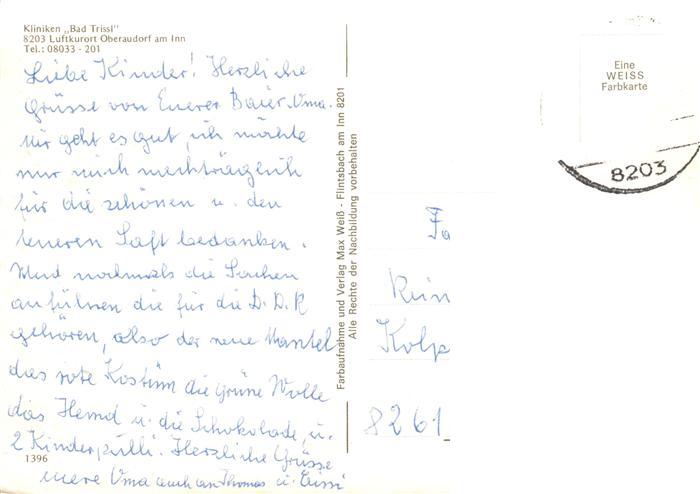 Kliniken „Bad Trissl"
8203 Luftkurort Oberaudorf am Inn
Tel.: 08033 - 201
Liebe Kinder! Herzliche
Grüsse von Euerer Baier-Oma.
Mir geht es gut, ich möchte
nur mich nachträglich
für die schönen u. den
teueren Saft bedanken.
Und nochmals die Sachen
anführen die für die D.D.R
gehören, also der neue Mantel
das rote Kostüm die Grüne Wolle
das Hemd u. die Schokolade, u.
2 Kinderpulli. Herzliche Grüsse
euere Oma auch an Thomas u.
1396
Farbaufnahme und Verlag Max Weiß - Flintsbach am Inn 8201
Alle Rechte der Nachbildung vorbehalten
Eine
WEISS
Farbkarte
8203
Fa
Kolp
8261